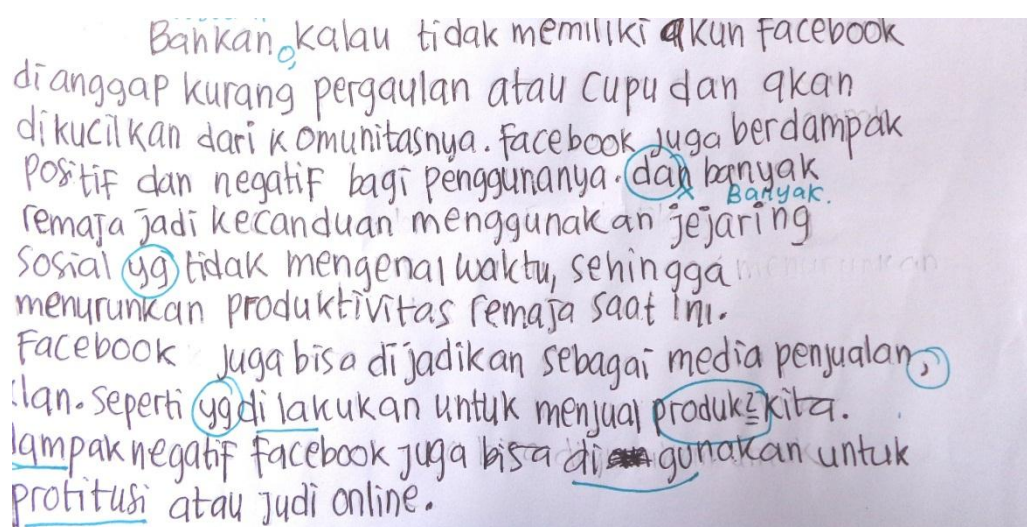 Bahkan, kalau tidak memiliki akun Facebook
dianggap kurang pergaulan atau cupu dan akan
dikucilkan dari komunitasnya. facebook juga berdampak
positif dan negatif bagi penggunanya. dan banyak
Banyak.
remaja jadi kecanduan menggunakan jejaring
sosial yg tidak mengenal waktu, sehingga
menurunkan produktivitas remaja saat ini.
Facebook juga bisa dijadikan sebagai media penjualan,
klan. seperti yg di lakukan untuk menjual produk2 kita.
dampak negatif facebook juga bisa di gunakan untuk
protitusi atau judi online.